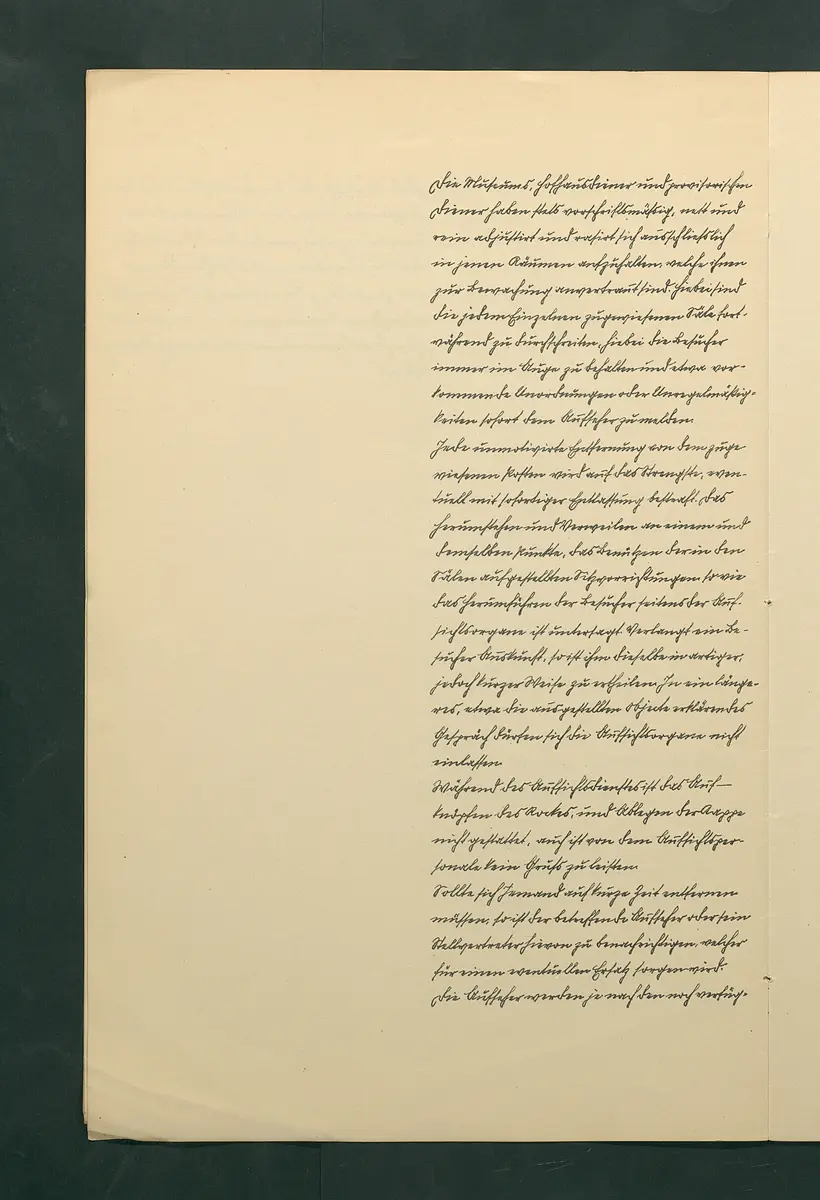 Die Museums, Hofhausdiener und provisorischen
Diener haben stets vorschriftsmäßig, nett und
rein adjustirt und rasirt sich ausschließlich
in jenen Räumen aufzuhalten, welche ihnen
zur Bewachung anvertraut sind. Hiebei sind
die jedem Einzelnen zugewiesenen Säle fort-
während zu durchschreiten, hiebei die Besucher
immer im Auge zu behalten und etwa vor-
kommende Unordnungen oder Unregelmäßig-
keiten sofort dem Aufseher zu melden.
Jede unmotivirte Entfernung von dem zuge
wiesenen Posten wird auf das Strengste, even-
tuell mit sofortiger Entlassung bestraft. Das
Herumstehen und Verweilen an einem und
demselben Punkte, das Benützen der in den
Sälen aufgestellten Sitzvorrichtungen sowie
das Herumführen der Besucher seitens der Auf-
sichtsorgane ist untersagt. Verlangt ein Be-
sucher Auskunft, so ist ihm dieselbe in artiger,
jedoch kurzer Weise zu ertheilen. In ein länge-
res, etwa die ausgestellten Objecte erklärendes
Gespräch dürfen sich die Aufsichtsorgane nicht
einlassen.
Während des Aufsichtsdienstes ist das Auf-
knöpfen des Rockes, und Ablegen der Kappe
nicht gestattet, auch ist von dem Aufsichtsper-
sonale kein Gruß zu leisten.
Sollte sich Jemand auf kurze Zeit entfernen
müssen, so ist der betreffende Aufseher oder sein
Stellvertreter hievon zu benachrichtigen, welcher
für einen eventuellen Ersatz sorgen wird.
Die Aufseher werden je nach den noch verfüg-